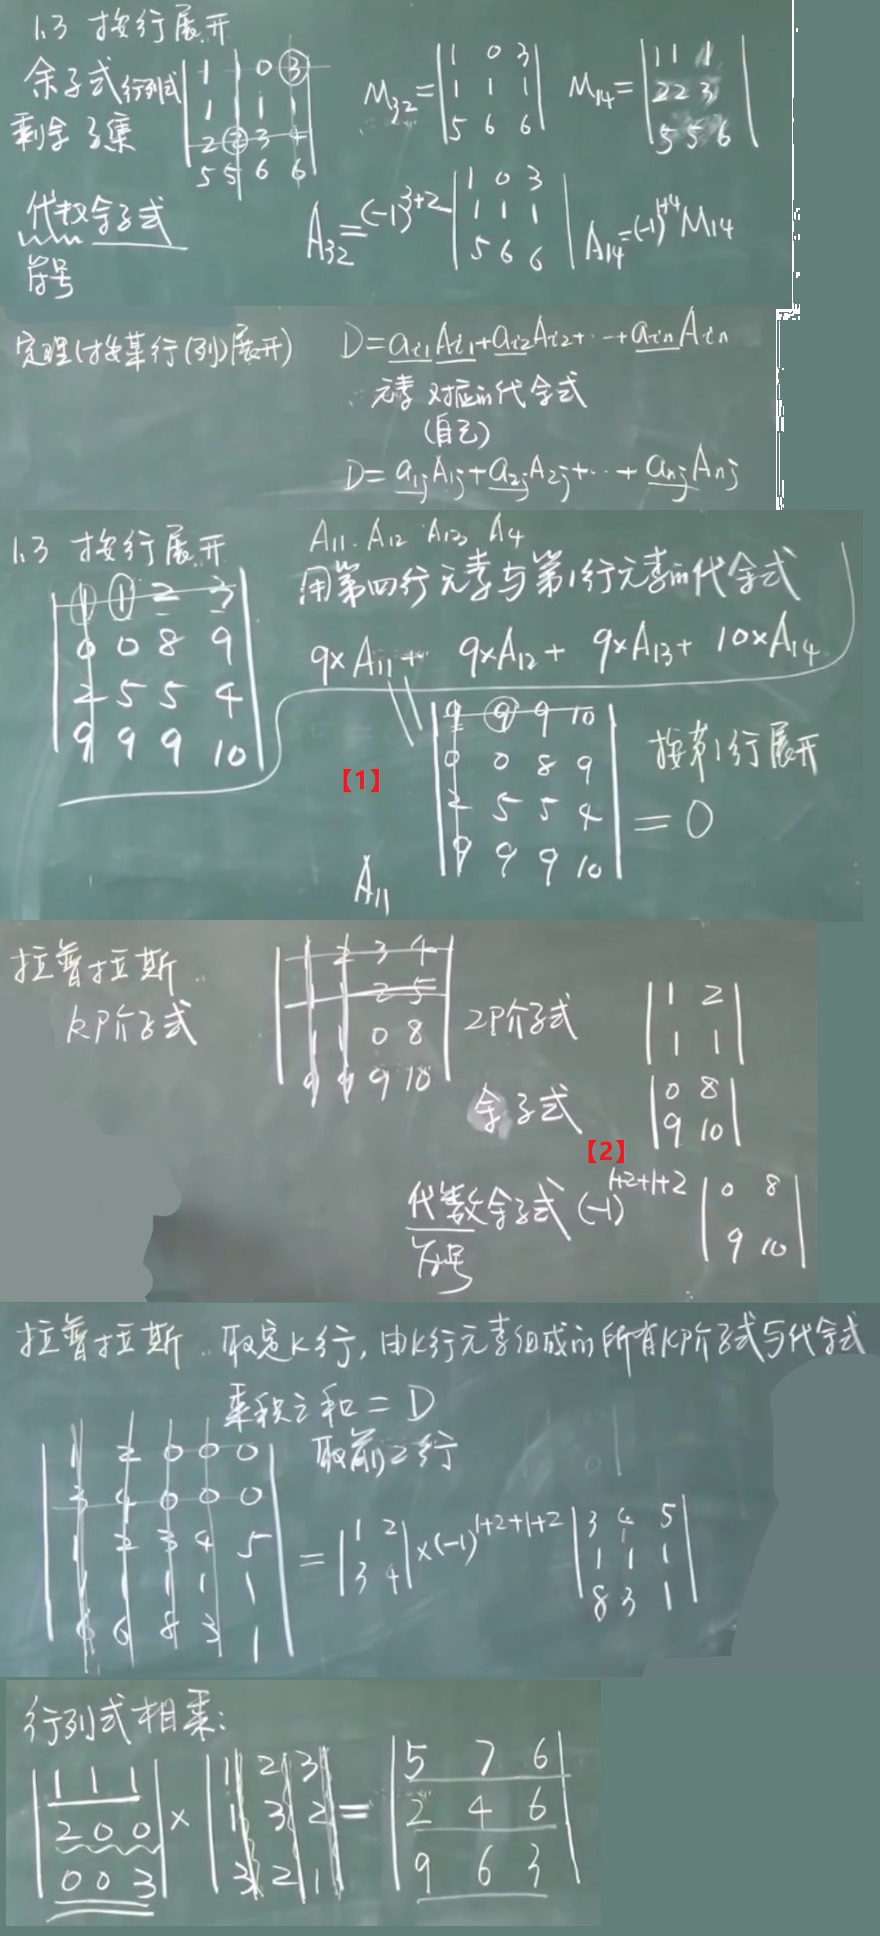 1.3 按行展开
余子式 行列式
剩余 子集
1 1 0 3
1 1 1 1
2 2 3 4
5 5 6 6
M32=
1 0 3
1 1 1
5 6 6
M14=
1 1 1
2 2 3
5 5 6
代数余子式
符号
A32=(-1)^3+2
1 0 3
1 1 1
5 6 6
A14=(-1)^1+4 M14
定理(按某行(列)展开)
D=ai1Ai1+ai2Ai2+··+ainAin
元素 对应的代余式
(自己)
D=a1jA1j+a2jA2j+··+anjAnj
1.3 按行展开
A11. A12 A13, A4
用第四行元素与第1行元素的代余式
1 1 2 3
0 0 8 9
2 5 5 4
9 9 9 10
9×A11+ 9×A12+ 9×A13+ 10×A14
9 9 9 10
0 0 8 9
2 5 5 4
9 9 9 10
按第1行展开
=0
【1】
A11
拉普拉斯..
K阶子式
1 2 3 4
1 1 2 5
1 1 0 8
9 9 9 10
2阶子式
1 2
1 1
余子式
0 8
9 10
【2】
代数余子式 (-1)^1+2+1+2
0 8
9 10
符号
拉普拉斯.. 取定K行,由K行元素组成的所有K阶子式与代余式
乘积之和=D
取前2行
1 2 0 0 0
3 4 0 0 0
1 2 3 4 5
1 1 1 1 1
6 6 8 3 1
=
1 2
3 4
×(-1)^1+2+1+2
3 4 5
1 1 1
8 3 1
行列式相乘:
1 1 1
2 0 0
0 0 3
×
1 2 3
1 3 2
3 2 1
=
5 7 6
2 4 6
9 6 3